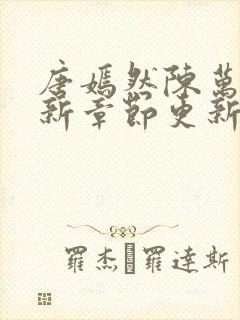 唐嫣然陳萬
新章節更新
羅杰 羅達斯